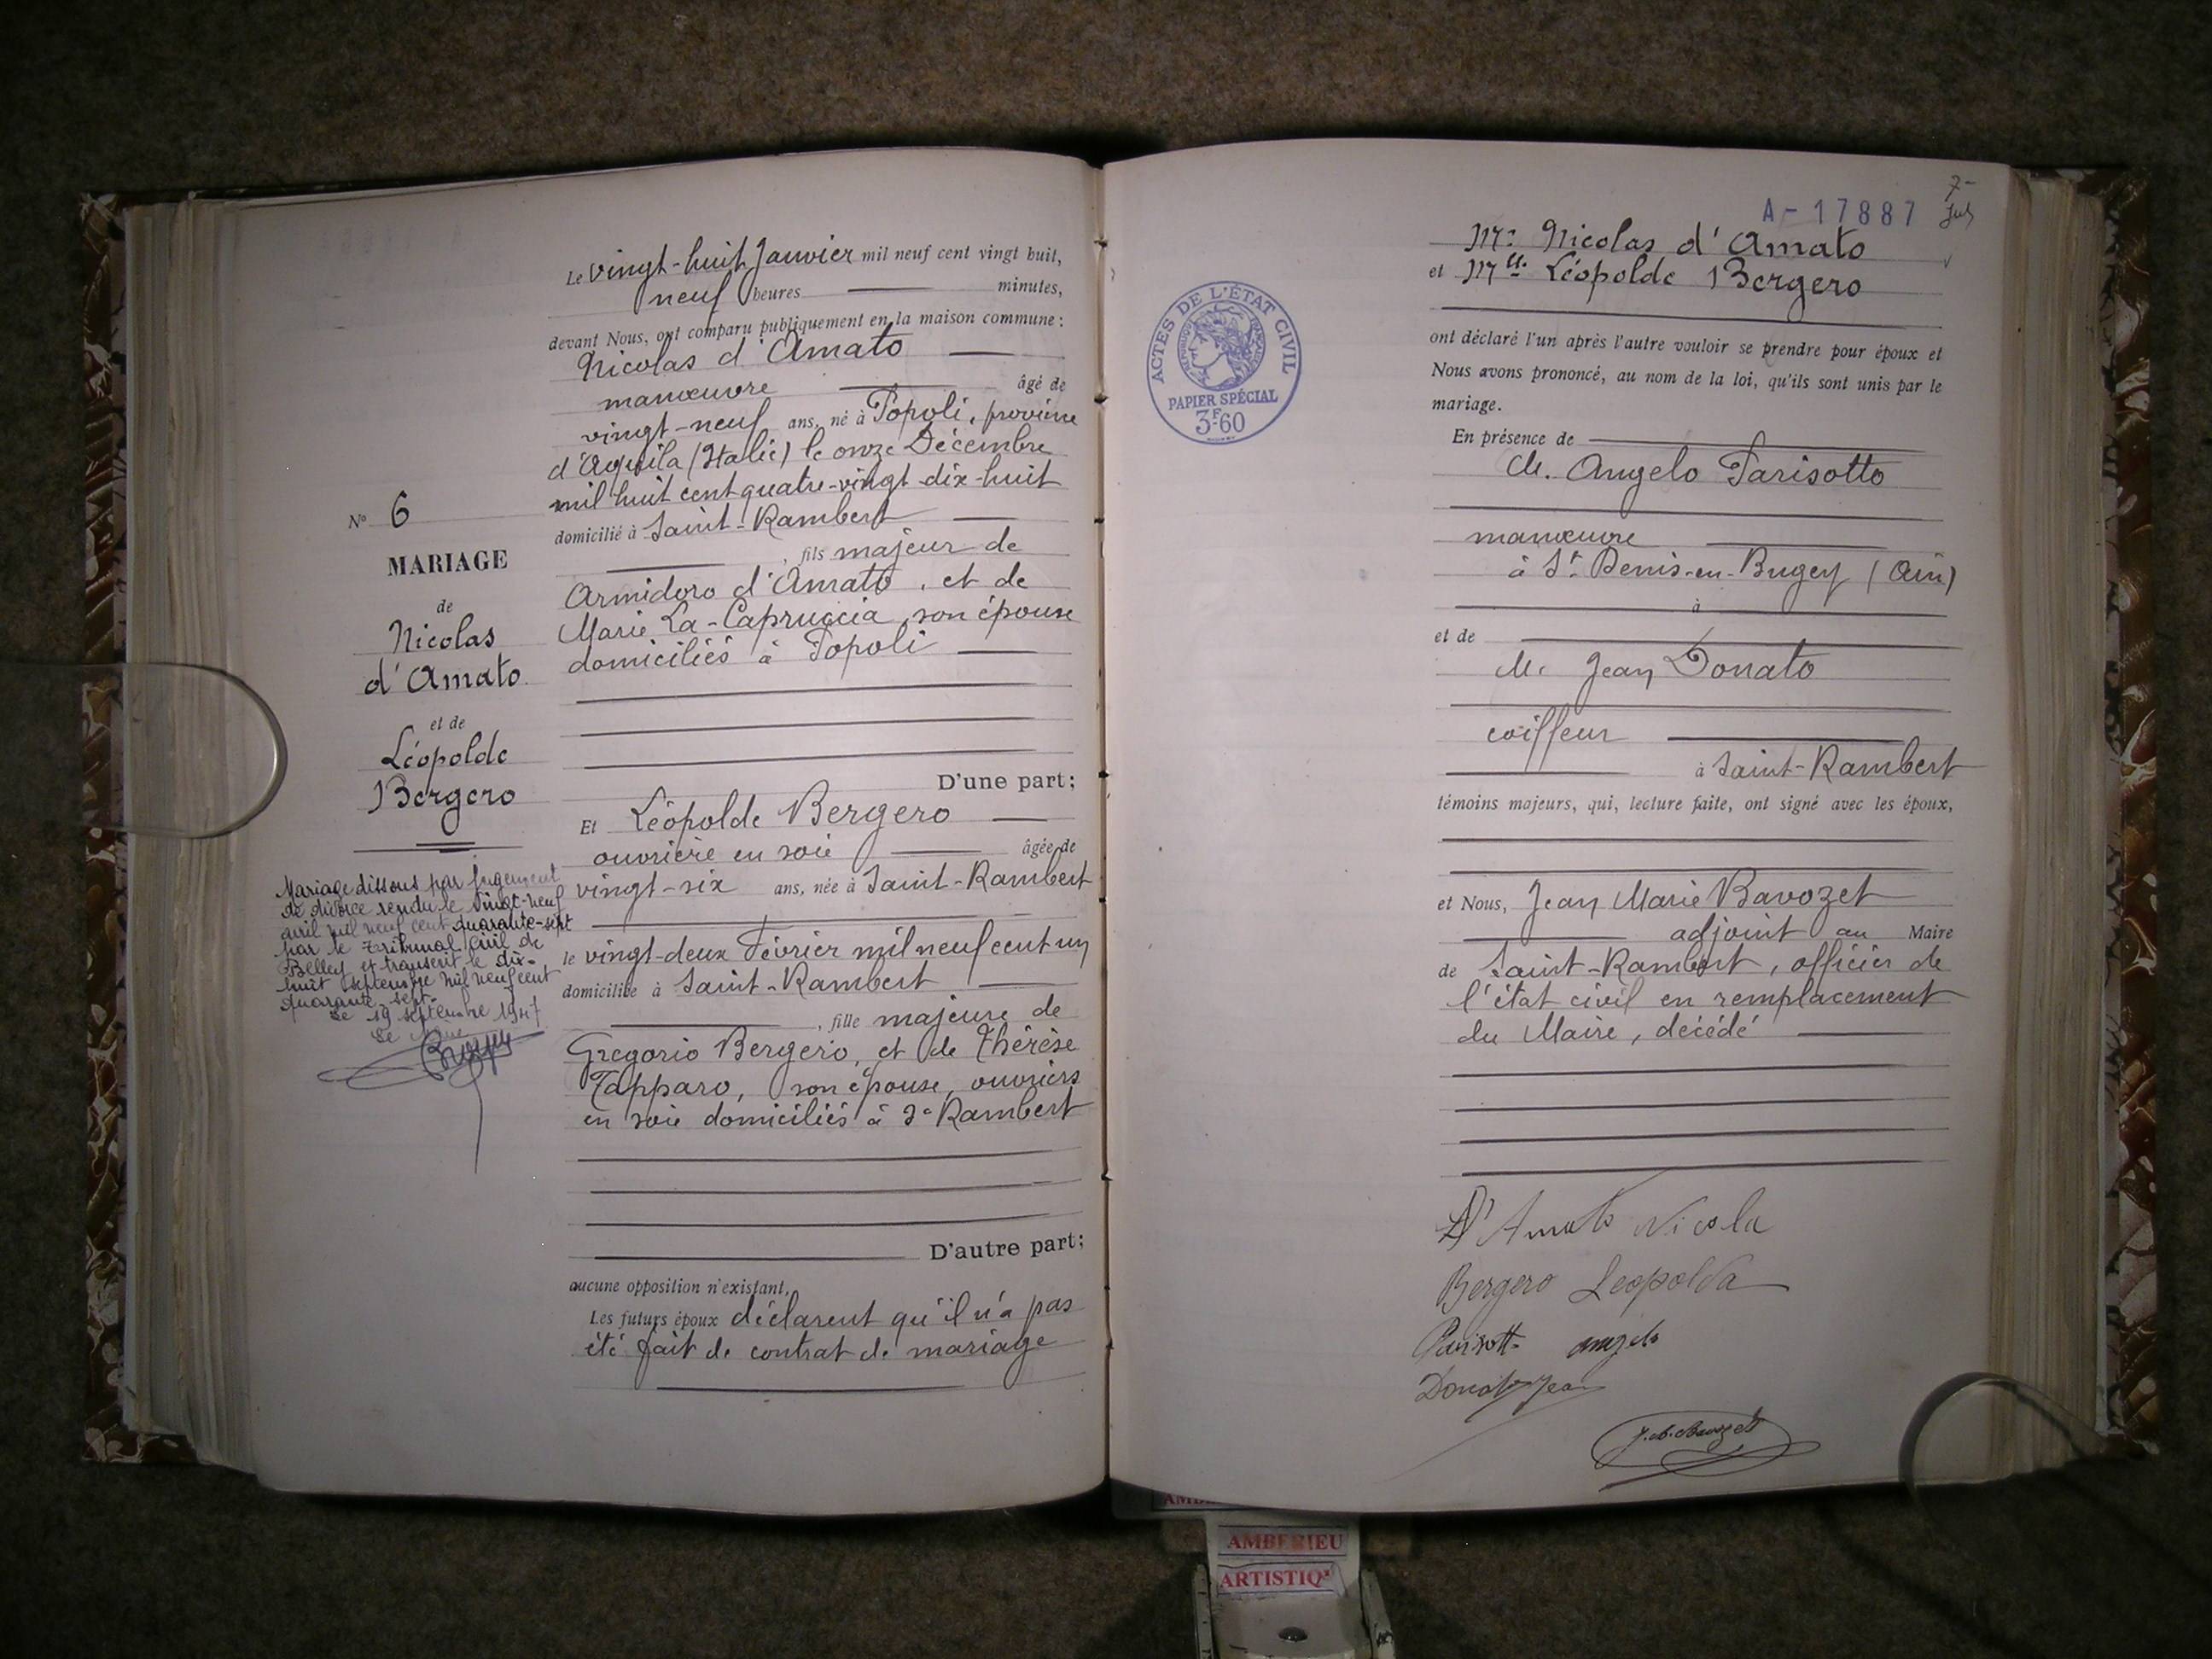 Le vingt-huit Janvier mil neuf cent vingt huit,
neuf heures minutes,
devant Nous, ont comparu publiquement en la maison commune :
Nicolas d'Amato
manœuvre âgé de
vingt-neuf ans, né à Popoli, province
d'Aquila (Italie) le onze Décembre
mil huit cent quatre-vingt-dix-huit
domicilié à Saint-Rambert
, fils majeur de
Armidoro d'Amato, et de
Marie La-Capruccia, son épouse
domiciliés à Popoli
D'une part;
Et Léopolde Bergero
ouvrière en soie âgée de
vingt-six ans, née à Saint-Rambert
le vingt-deux Février mil neuf cent un
domiciliée à Saint-Rambert
, fille majeure de
Gregorio Bergero, et de Thérèse
Tapparo, son épouse, ouvriers
en soie domiciliés à St Rambert
D'autre part;
aucune opposition n'existant,
Les futurs époux déclarent qu'il n'a pas
été fait de contrat de mariage
No 6
MARIAGE
de
Nicolas
d'Amato
et de
Léopolde
Bergero
Mariage dissous par jugement
de divorce rendu le vingt-neuf
avril mil neuf cent quarante-sept
par le Tribunal Civil de
Belley et transcrit le dix-
huit septembre mil neuf cent
quarante-sept.
Le 19 septembre 1947
Le Maire
A-17887
7-
ACTES DE L'ÉTAT CIVIL
RÉPUBLIQUE FRANÇAISE
PAPIER SPÉCIAL
3F60
Mr Nicolas d'Amato
et Mlle Léopolde Bergero
ont déclaré l'un après l'autre vouloir se prendre pour époux et
Nous avons prononcé, au nom de la loi, qu'ils sont unis par le
mariage.
En présence de
M. Angelo Parisotto
manœuvre
à St Denis-en-Bugey (Ain)
à
et de
M. Jean Donato
coiffeur
à Saint-Rambert
témoins majeurs, qui, lecture faite, ont signé avec les époux,
et Nous, Jean Marie Bavozet
adjoint au Maire
de Saint-Rambert, officier de
l'état civil en remplacement
du Maire, décédé
D'Amato Nicola
Bergero Leopolda
Parisotto angelo
Donato Jean
J.M. Bavozet
AMBERIEU
ARTISTIQ